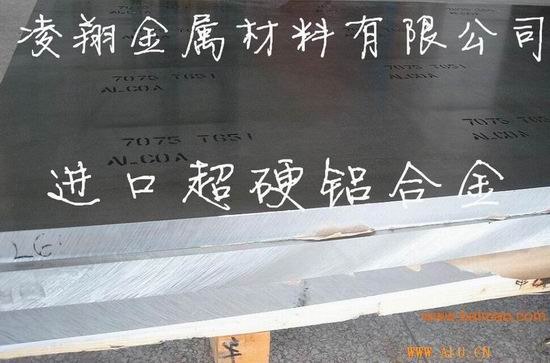 凌翔金属材料有限公司
7075 T651 7075 T651
ALCOA ALCOA
7075 T651 7075 T651
ALCOA ALCOA
进口超硬铝合金
WWW.ALU.CN